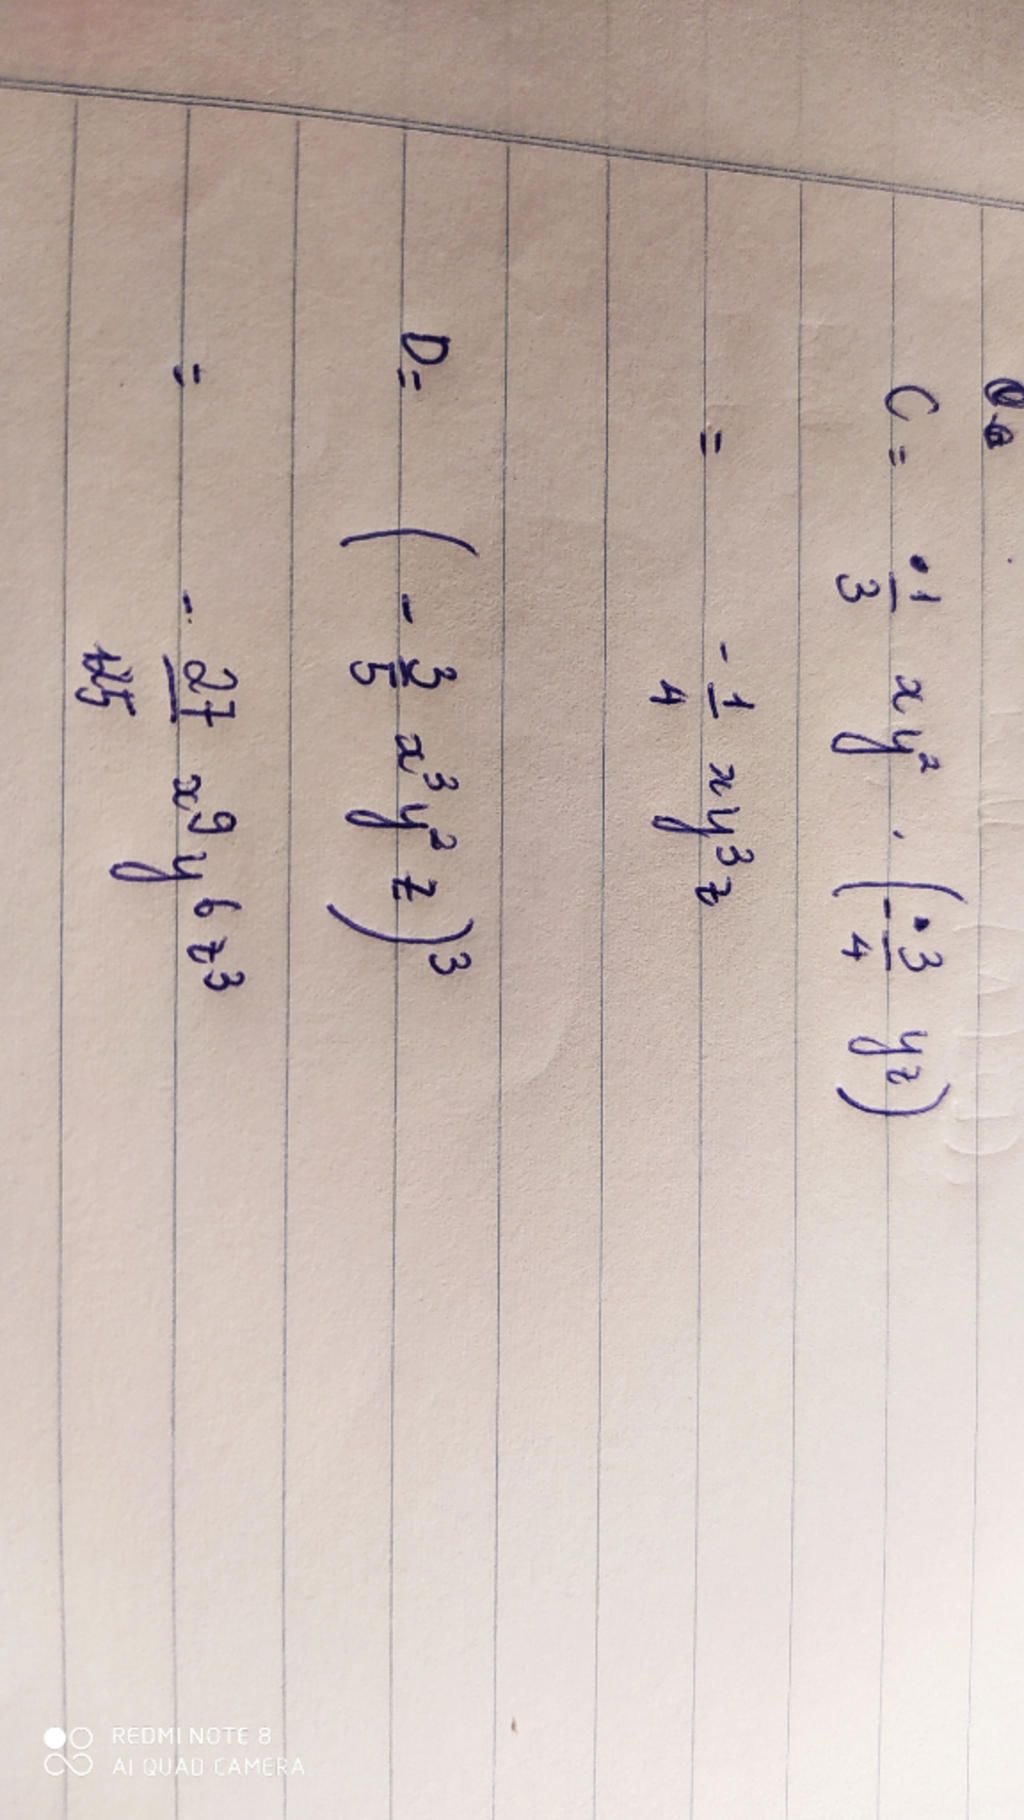 C = 1/3 xy² · (-3/4 yz)
= -1/4 xy³z
D = (-3/5 x³y²z)³
= -27/125 x⁹y⁶z³
REDMI NOTE 8
AI QUAD CAMERA